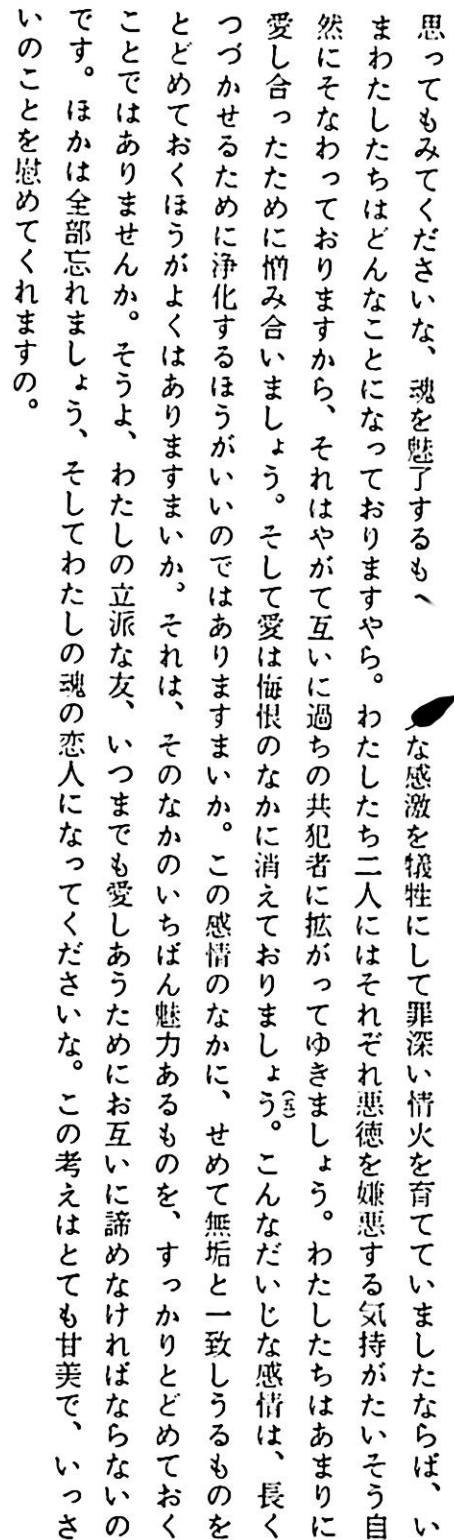 思ってもみてくださいな、魂を魅了するも な感激を犠牲にして罪深い情火を育てていましたならば、い
まわたしたちはどんなことになっておりますやら。わたしたち二人にはそれぞれ悪徳を嫌悪する気持がたいそう自
然にそなわっておりますから、それはやがて互いに過ちの共犯者に拡がってゆきましょう。わたしたちはあまりに
愛し合ったために憎み合いましょう。そして愛は悔恨のなかに消えておりましょう。(五)こんなだいじな感情は、長く
つづかせるために浄化するほうがいいのではありますまいか。この感情のなかに、せめて無垢と一致しうるものを
とどめておくほうがよくはありますまいか。それは、そのなかのいちばん魅力あるものを、すっかりとどめておく
ことではありませんか。そうよ、わたしの立派な友、いつまでも愛しあうためにお互いに諦めなければならないの
です。ほかは全部忘れましょう、そしてわたしの魂の恋人になってくださいな。この考えはとても甘美で、いっさ
いのことを慰めてくれますの。